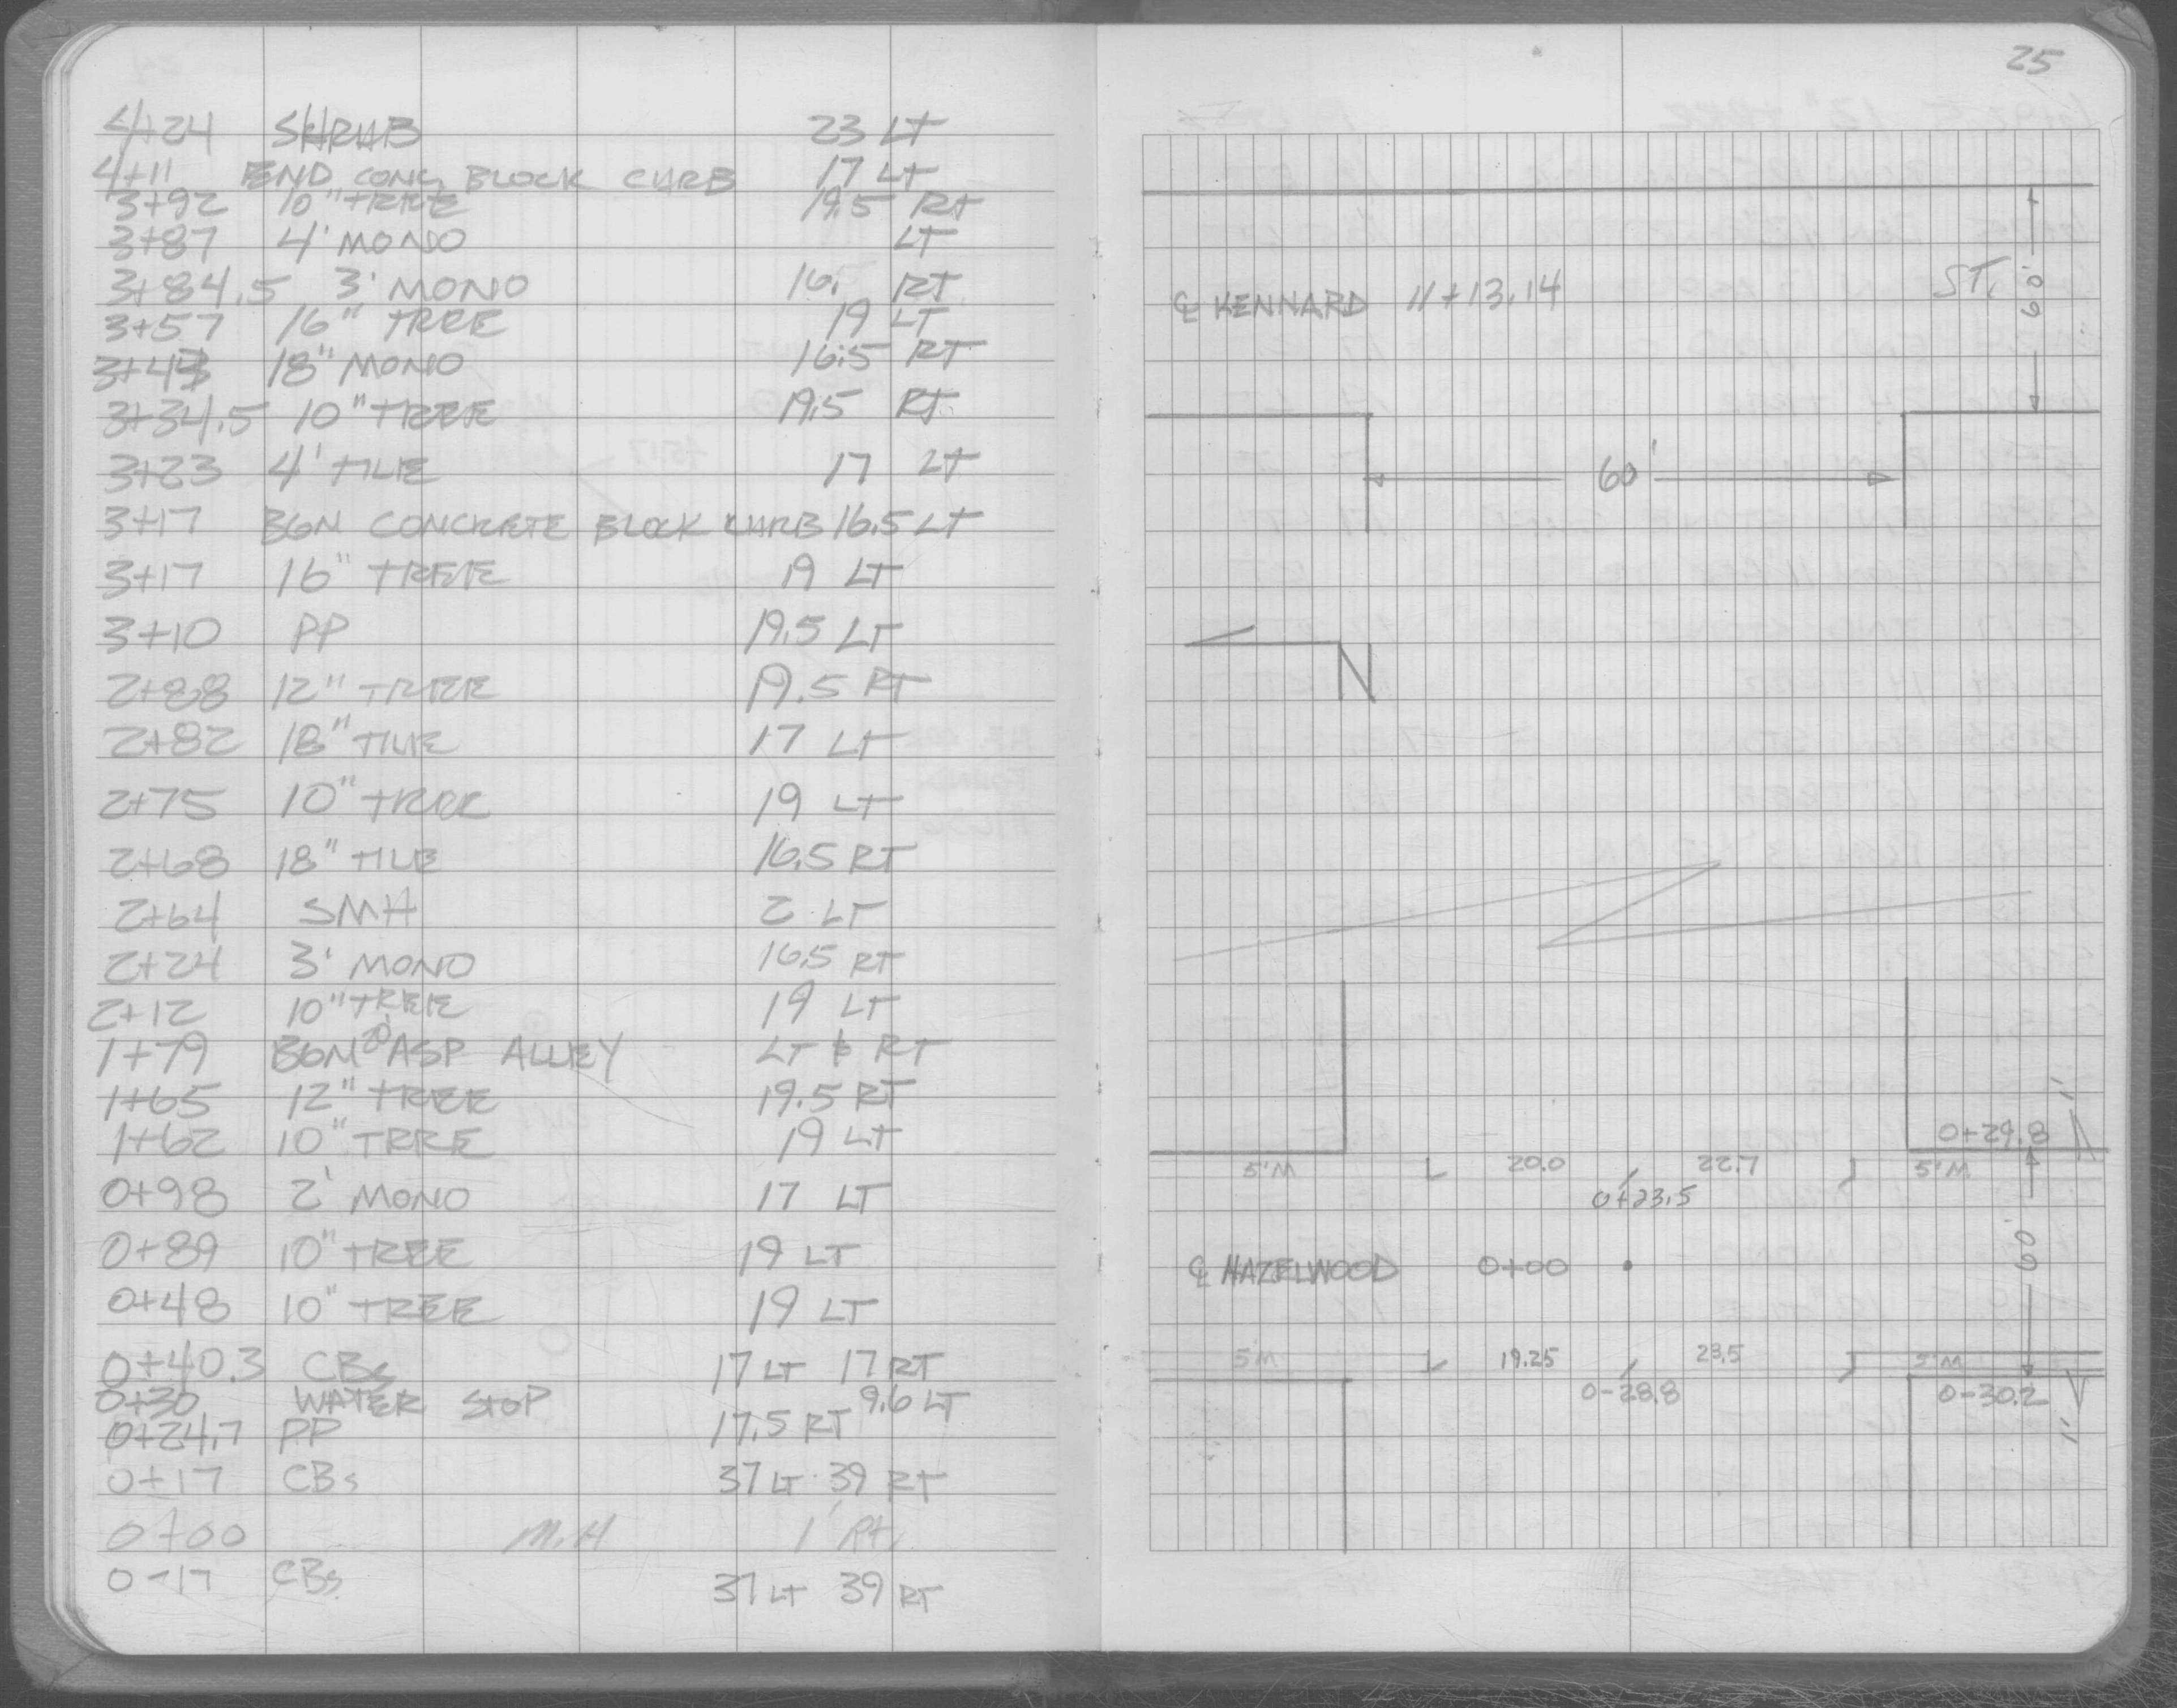 4+24 SHRUB 23 LT
4+11 END CONC BLOCK CURB 17 LT
3+92 10" TREE 19.5 RT
3+87 4' MONO LT
3+84.5 3' MONO 16. RT
3+57 16" TREE 19 LT
18" MONO 16.5 RT
3+34.5 10" TREE 19.5 RT
3+23 4' TILE 17 LT
3+17 BGN CONCRETE BLOCK CURB 16.5 LT
3+17 16" TREE 19 LT
3+10 PP 19.5 LT
2+88 12" TREE 19.5 RT
2+82 18" TILE 17 LT
2+75 10" TREE 19 LT
2+68 18" TILE 16.5 RT
2+64 SMH 2 LT
2+24 3' MONO 16.5 RT
2+12 10" TREE 19 LT
1+79 BGN ASP ALLEY LT & RT
1+65 12" TREE 19.5 RT
1+62 10" TREE 19 LT
0+98 2' MONO 17 LT
0+89 10" TREE 19 LT
0+48 10" TREE 19 LT
0+40.3 CBs 17 LT 17 RT
0+30 WATER STOP 9.6 LT
0+24.7 PP 17.5 RT
0+17 CBs 37 LT 39 RT
0+00 M.H 1' Rt.
0-17 CBs 37 LT 39 RT
25
℄ KENNARD 11+13.14 ST.
60'
60'
N
0+29.8
5'M 20.0 22.7 5'M
0+23.5
℄ HAZELWOOD 0+00
60'
5'M 19.25 23.5 5'M
0-28.8 0-30.2